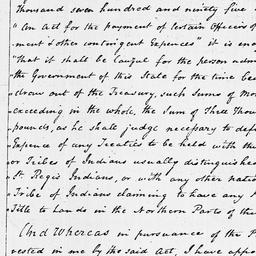 Thousand seven hundred and ninety five
"An Act for the payment of Certain Officers of
ment & other contingent Expences" it is ena
That it shall be lawful for the person adm
the Government of this State for the time bei
draw out of the Treasury, such Sums of Mon
exceeding in the whole, the Sum of Three Thou
pounds, as he shall judge necessary to def
Expence of any Treaties to be held with the
or Tribes of Indians usually distinguished
St. Regis Indians, or with any other natio
Tribe of Indians claiming to have any
Title to Lands in the Northern Parts of the
And Whereas in pursuance of the P
vested in me by the said Act, I have appo